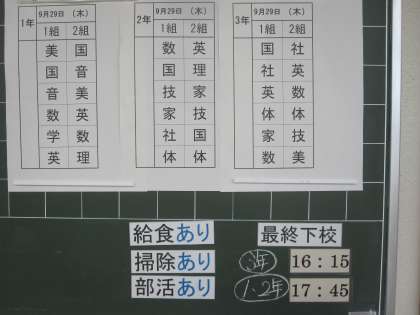 1年 9月29日 (木)
1組 2組
美 国
国 音
音 美
数 英
学 数
英 理
2年 9月29日 (木)
1組 2組
数 英
国 理
技 家
家 技
社 国
体 体
3年 9月29日 (木)
1組 2組
国 社
社 英
英 数
体 体
家 技
数 美
給食あり
掃除あり
部活あり
最終下校
3年 16:15
1・2年 17:45